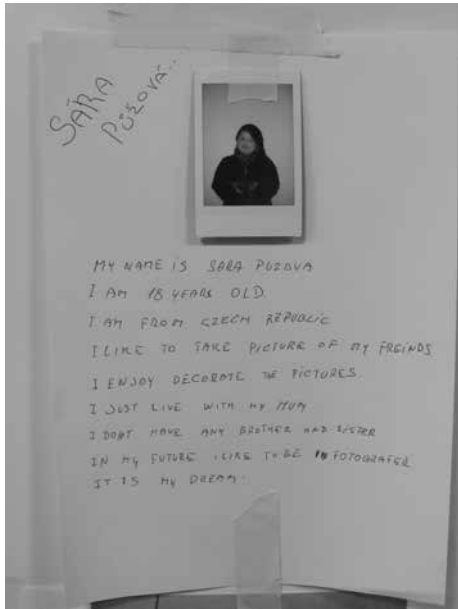 SÁRA
PŮŽOVÁ..
MY NAME IS SARA PUZOVA
I AM 18 YEARS OLD.
I AM FROM CZECH REPUBLIC
I LIKE TO TAKE PICTURE OF MY FREINDS
I ENJOY DECORATE THE PICTURES.
I JUST LIVE WITH MY MUM
I DONT HAVE ANY BROTHER AND SISTER
IN MY FUTURE I LIKE TO BE FOTOGRAFER
IT IS MY DREAM.